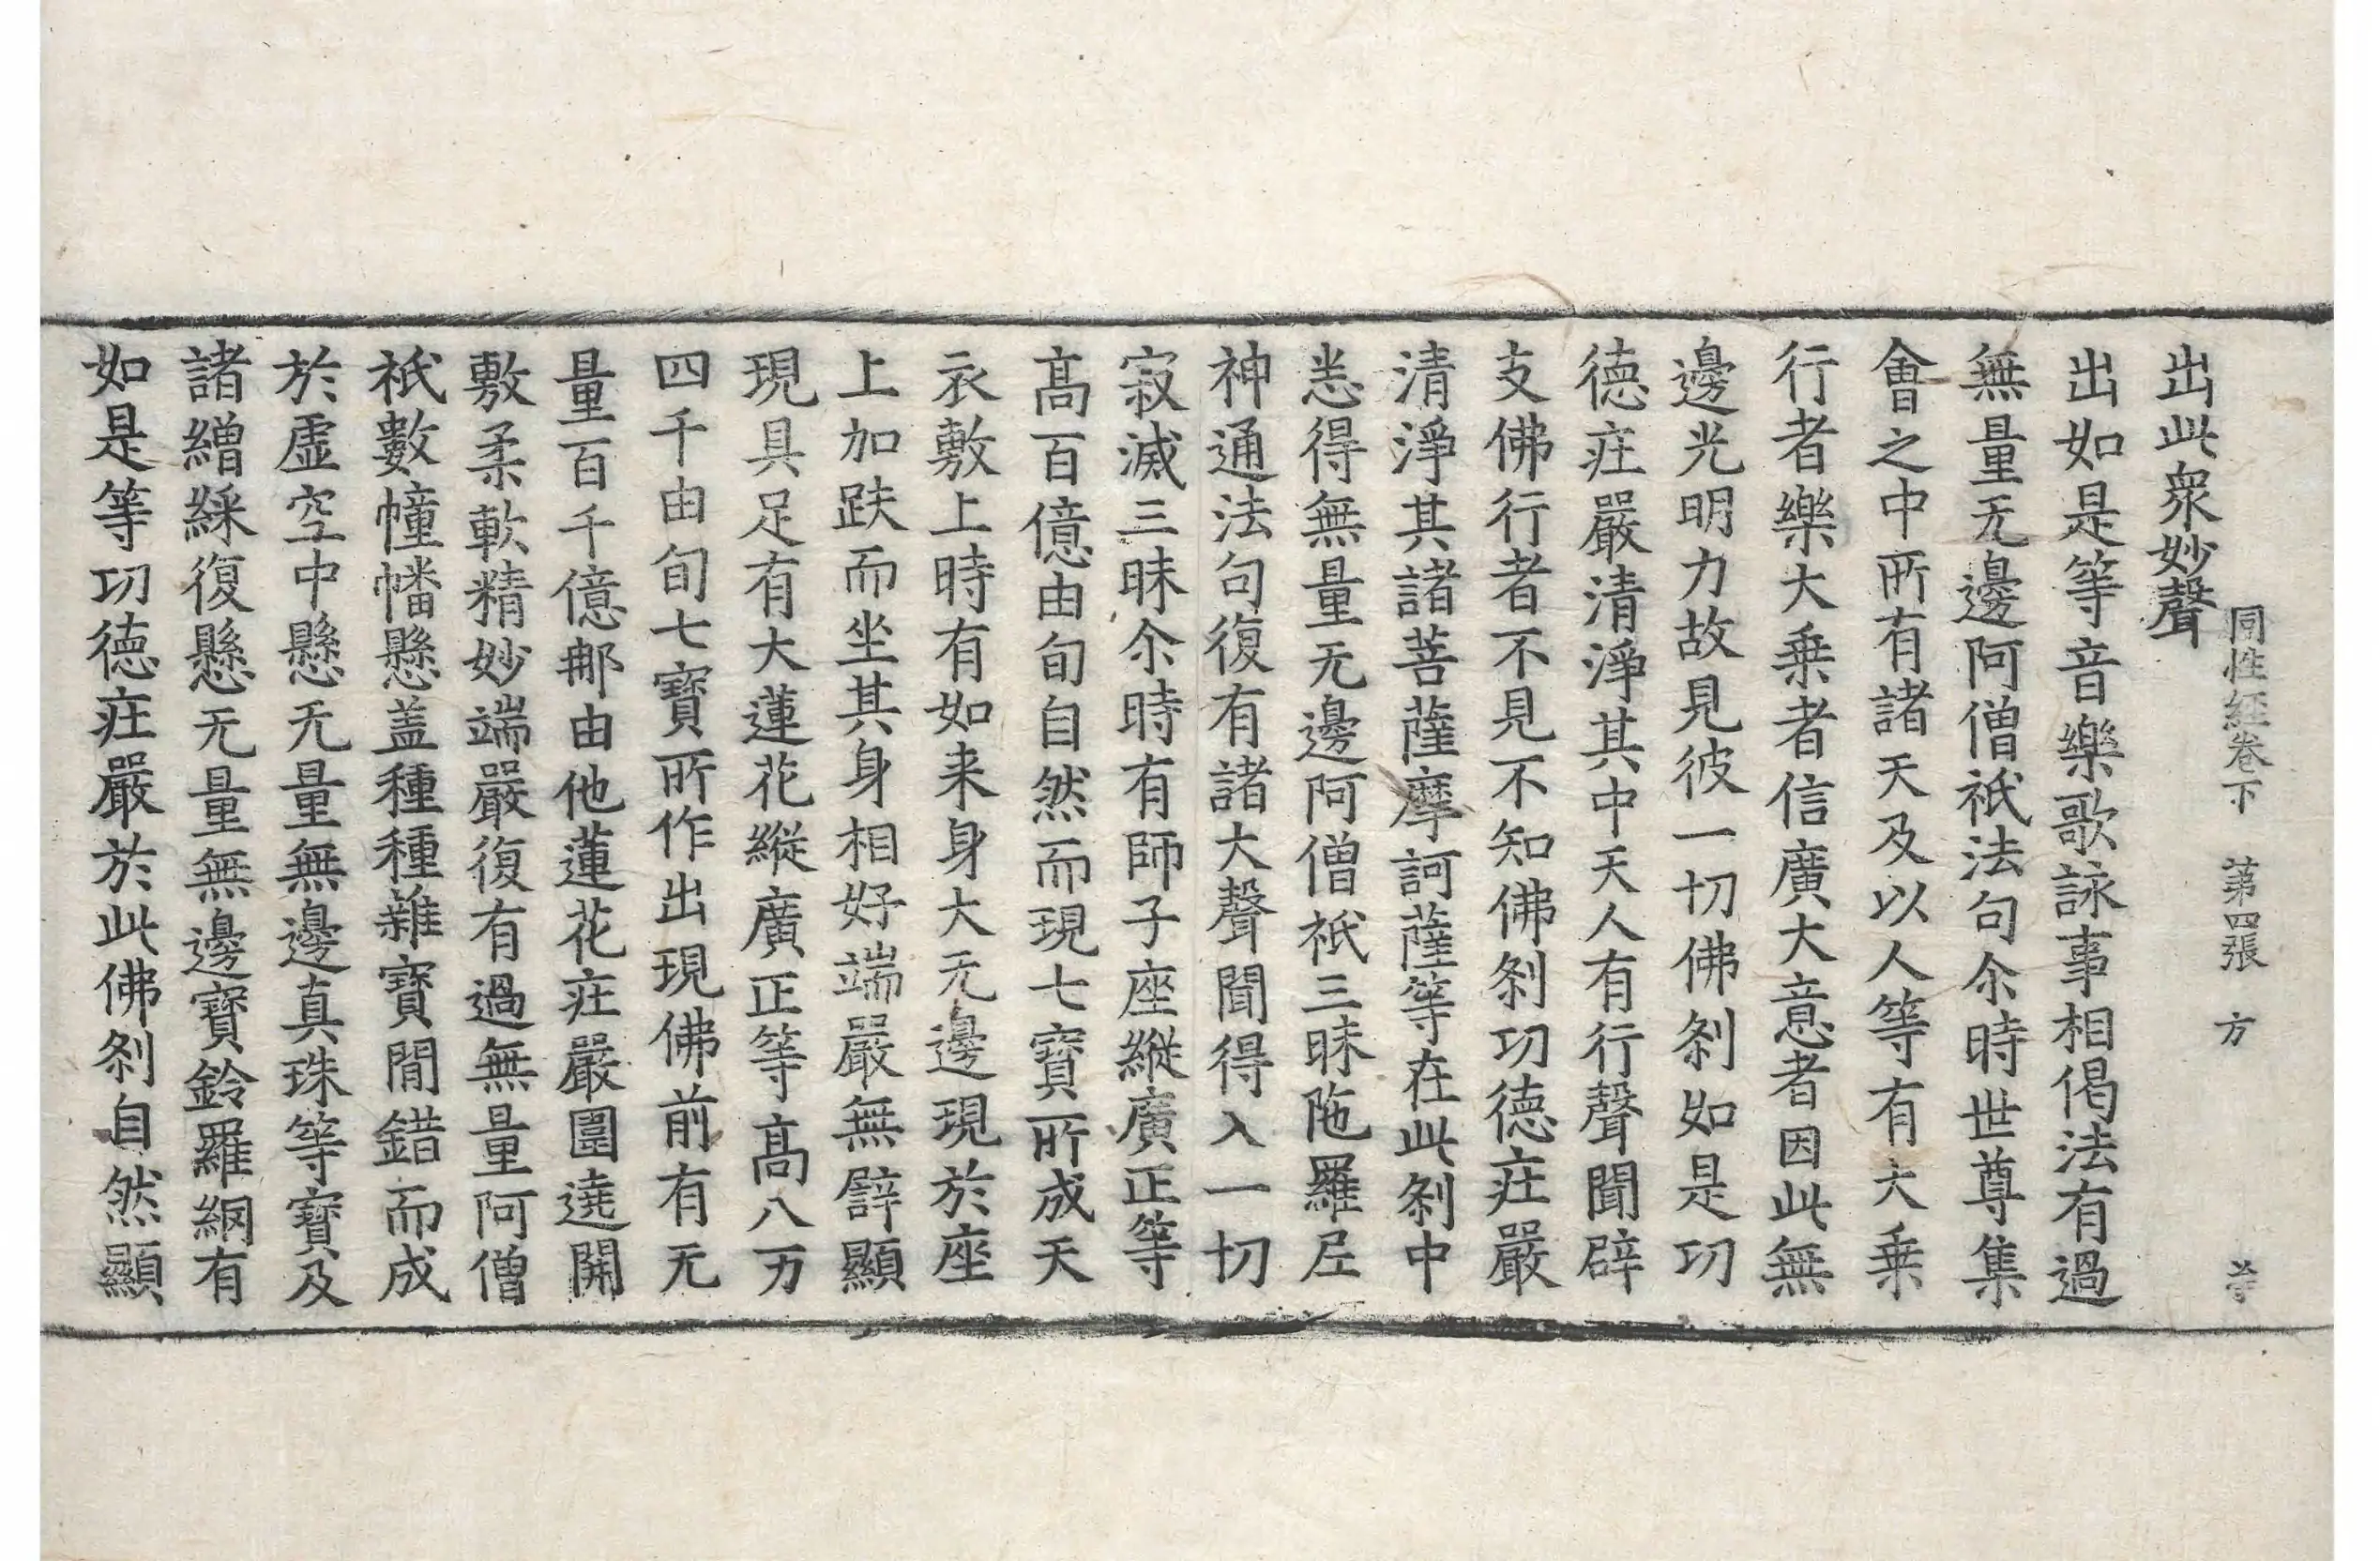 同性経卷下　第四張　方
出此衆妙聲
出如是等音樂歌詠事相偈法有過
無量无邊阿僧祇法句尒時世尊集
會之中所有諸天及以人等有大乗
行者樂大乗者信廣大意者因此無
邊光明力故見彼一切佛刹如是功
德疘嚴清淨其中天人有行聲聞辟
支佛行者不見不知佛刹功德疘嚴
清淨其諸菩薩摩訶薩等在此刹中
悉得無量无邊阿僧祇三昧陁羅尼
神通法句復有諸大聲聞得入一切
寂滅三昧尒時有師子座縱廣正等
髙百億由旬自然而現七寳所成天
衣敷上時有如来身大无邊現於座
上加趺而坐其身相好端嚴無辥顯
現具足有大蓮花縱廣正等髙八万
四千由旬七寳所作出現佛前有无
量百千億那由他蓮花疘嚴圍遶開
敷柔軟精妙端嚴復有過無量阿僧
祇數幢幡懸盖種種雜寳閒錯而成
於虚空中懸无量無邊真珠等寳及
諸繒綵復懸无量無邊寳鈴羅網有
如是等功德疘嚴於此佛刹自然顯